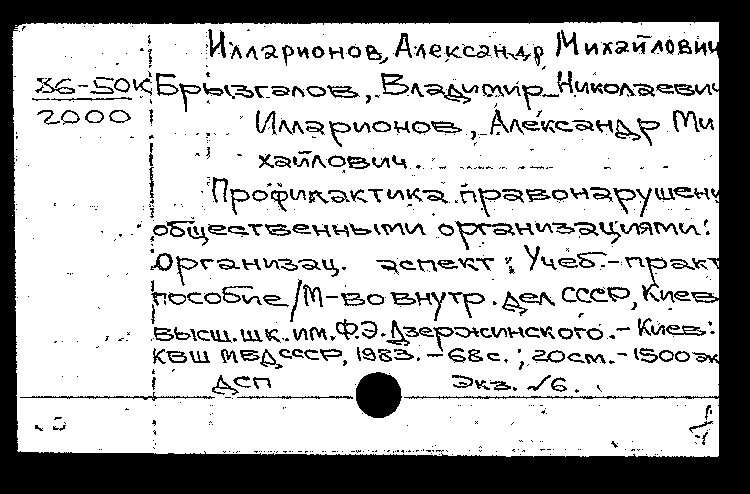 Илларионов, Александр Михайлович
86-50К Брызгалов, Владимир Николаевич
2000 Илларионов, Александр Ми
хайлович.
Профилактика правонарушени
общественными организациями:
Организац. аспект: Учеб.-практ
пособие/М-во внутр. дел СССР, Киев
высш. шк. им. Ф.Э. Дзержинского. - Киев:
КВШ МВД СССР, 1983. - 68 с.; 20 см. - 1500 эк
ДСП Экз. √6.